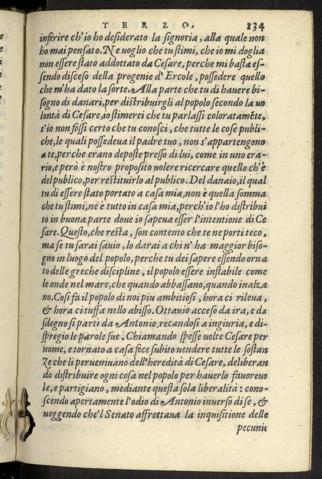 TERZO. 134
inferire ch'io ho desiderato la signoria, alla quale non
ho mai pensato. Ne voglio che tu stimi, che io mi doglia
non essere stato addottato da Cesare, perche mi basta es-
sendo disceso della progenie d'Ercole, possedere quello
che m'ha dato la sorte. Alla parte che tu di hauere bi-
sogno di danari, per distribuirgli al popolo secondo la uo
lontà di Cesare, io stimerei che tu parlassi coloratamēte,
s'io non fossi certo che tu conosci, che tutte le cose publi-
che, le quali possedeua il padre tuo, non s'appartengono
a te, perche erano deposte presso di lui, come in uno era-
rio, e però è nostro proposito uolere ricercare quello ch'è
del publico, per restituirlo al publico. Del danaio, il qual
tu di essere stato portato a casa mia, non è quella somma
che tu stimi, ne è tutto in casa mia, perch'io l'ho distribui
to in buona parte doue io sapeua esser l'intentione di Ce
sare. Questo, che resta, son contento che te ne porti teco,
ma se tu sarai sauio, lo darai a chi n'ha maggior biso-
gno in luogo del popolo, perche tu dei sapere essendo orna
to delle greche discipline, il popolo essere instabile come
le onde nel mare, che quando abbassano, quando inalza
no. Cosi fà il popolo di noi piu ambitiosi, hora ci rileua,
& hora ci tuffa nello abisso. Ottauio acceso da ira, e da
sdegno si parti da Antonio, recandosi a ingiuria, e di-
spregio le parole sue. Chiamando spesse uolte Cesare per
nome, e tornato a casa fece subito uendere tutte le sostan
ze che li perueniuano dell'heredità di Cesare, deliberan
do distribuire ogni cosa nel popolo per hauerlo fauoreuo
le, e partigiano, mediante questa sola liberalità: cono-
scendo apertamente l'odio di Antonio inuerso di se, &
ueggendo che'l Senato affrettaua la inquisitione delle
pecunie